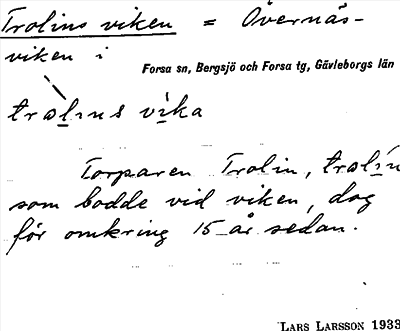 Trolins viken = Övernäs-
viken i
Forsa sn, Bergsjö och Forsa tg, Gävleborgs län
tralins vika
Torparen Trolin, tralín
som bodde vid viken, dog
för omkring 15 år sedan.
LARS LARSSON 1933